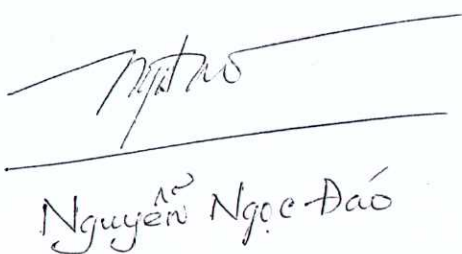 Nguyễn Ngọc Đáo